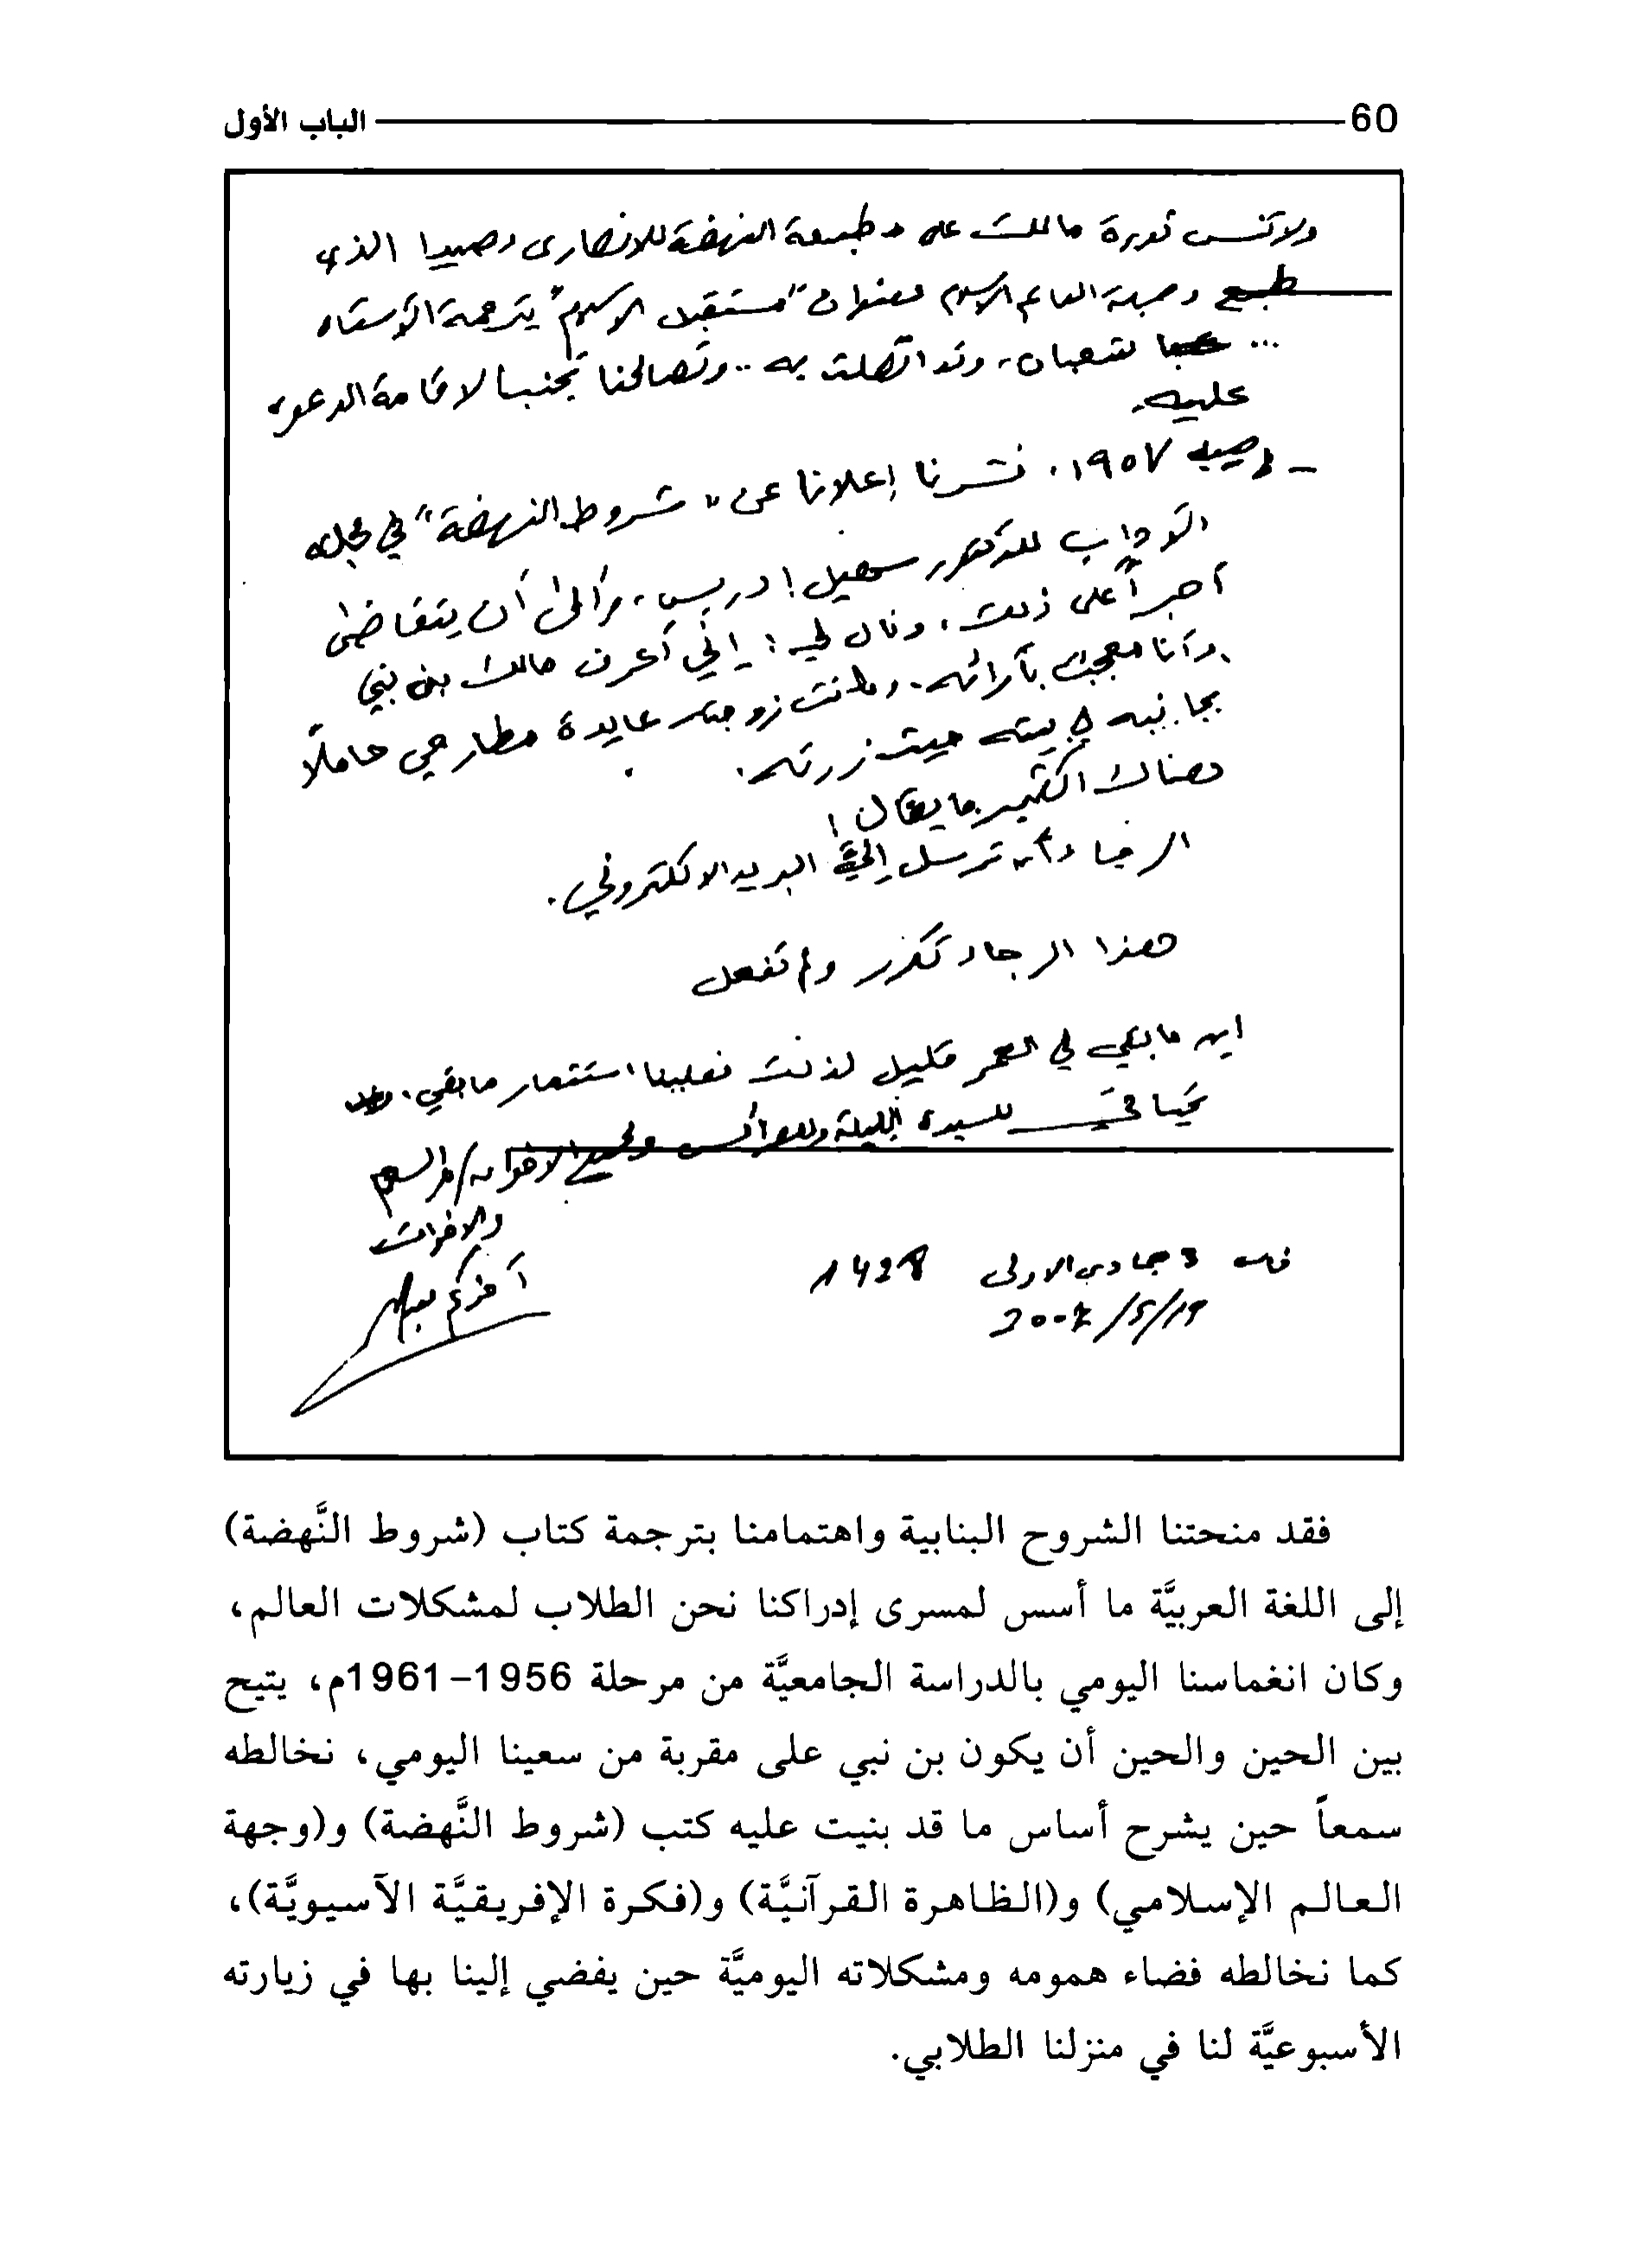 60 الباب الأول
ولا تنس ثورة مالك على مطبعة النهضة للانصاري وصيدا الذي
طبع وجهة العالم الاسلامي بعنوان "مستقبل الاسلام" بترجمة الأستاذ
... شعبان، وقد اتصلت به .. وتصالحنا تجنبا لاقامة الدعوى
عليه.
- وصيف ١٩٥٧، نشرنا إعلانا عن "شروط النهضة" في مجلة
الآداب للدكتور سهيل ادريس، أن يتقاضى
أجراً على ذلك، وقال لي: إني أعرف مالك بن نبي
وأنا معجب بآرائه. وكانت زوجته عايدة مطارجي حاملاً
بجانبه في بيته حيث زرته.
وهناك الكثير ما يقال!
الرجاء أن ترسل إليّ البريد الالكتروني.
هذا الرجاء تكرر ولم تفعل
إن ما بقي في العمر قليل لذلك فعلينا استثمار ما بقي.
تحياتي للسيدة الجليلة
والاخوات
أخوكم
3 جمادى الاولى 1428
2007/5/19
فقد منحتنا الشروح البنابية واهتمامنا بترجمة كتاب (شروط النَّهضة)
إلى اللغة العربيَّة ما أسس لمسرى إدراكنا نحن الطلاب لمشكلات العالم،
وكان انغماسنا اليومي بالدراسة الجامعيَّة من مرحلة 1956-1961م، يتيح
بين الحين والحين أن يكون بن نبي على مقربة من سعينا اليومي، نخالطه
سمعاً حين يشرح أساس ما قد بنيت عليه كتب (شروط النَّهضة) و(وجهة
العالم الإسلامي) و(الظاهرة القرآنيَّة) و(فكرة الإفريقيَّة الآسيويَّة)،
كما نخالطه فضاء همومه ومشكلاته اليوميَّة حين يفضي إلينا بها في زيارته
الأسبوعيَّة لنا في منزلنا الطلابي.